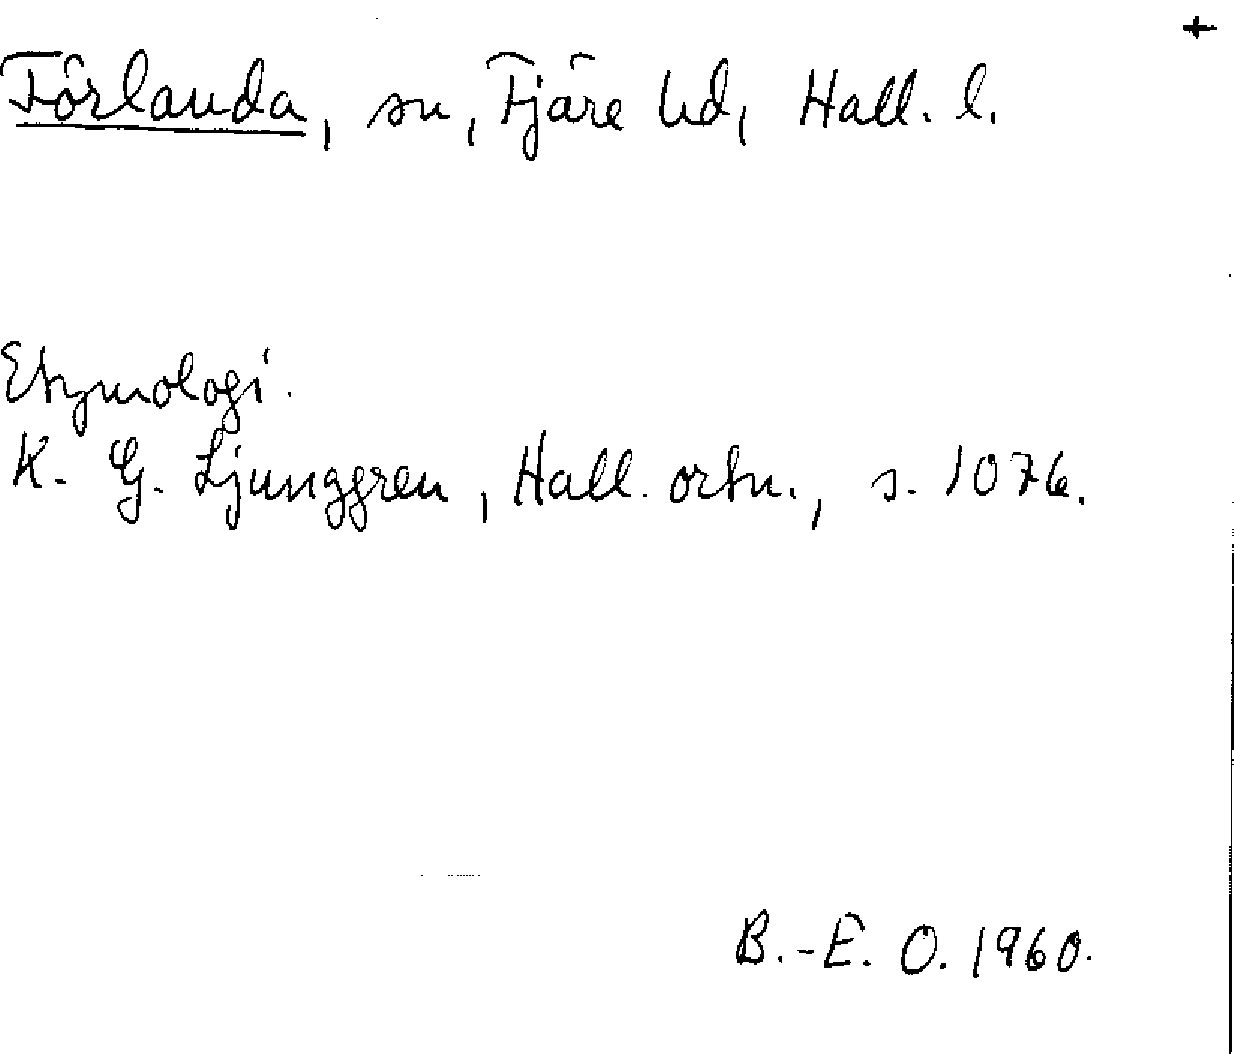 +
Förlanda, sn, Fjäre hd, Hall. l.
Etymologi.
K. G. Ljunggren, Hall. ortn., s. 1076.
B.-E. O. 1960.